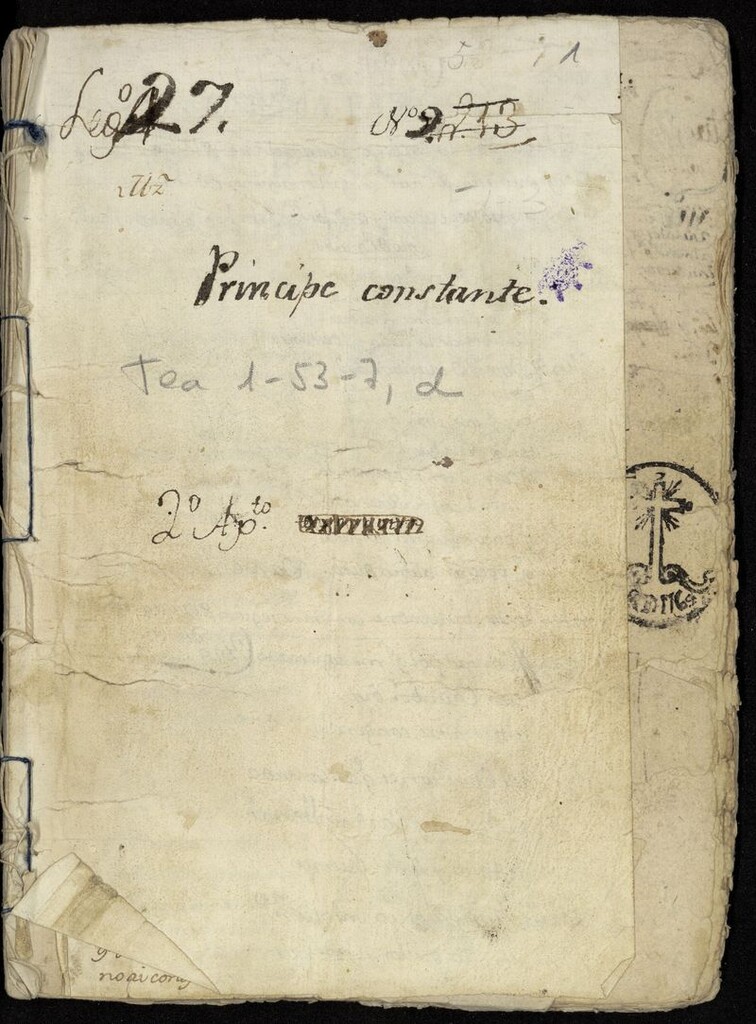 5 1
Leg.º 27.
Nº 9.
Principe constante.
Tea 1-53-7, d
2º Ap.to
no ai con